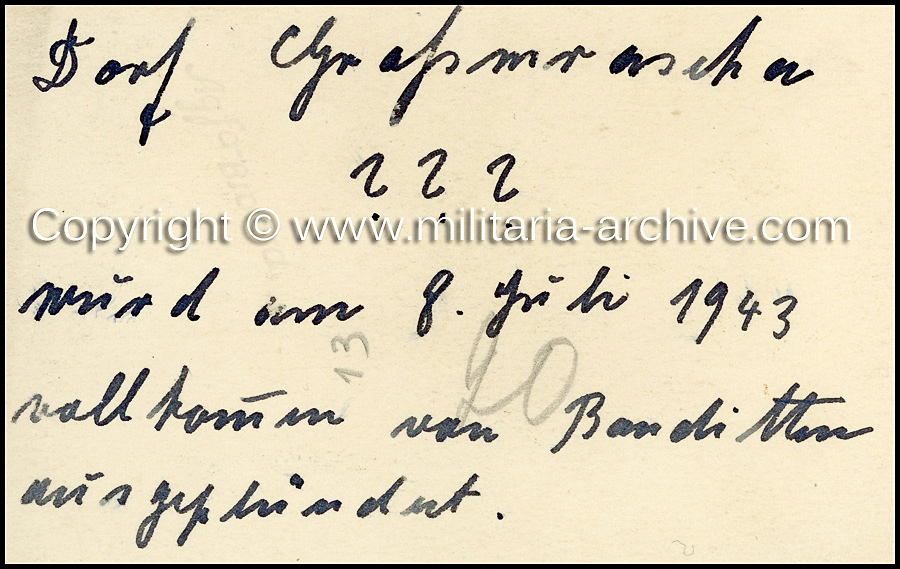 Dorf Grafsmrascha
? ? ?
Copyright © www.militaria-archive.com
wurd am 8. Juli 1943
vollkomm̄en von Banditten
ausgeplündert.
13
20